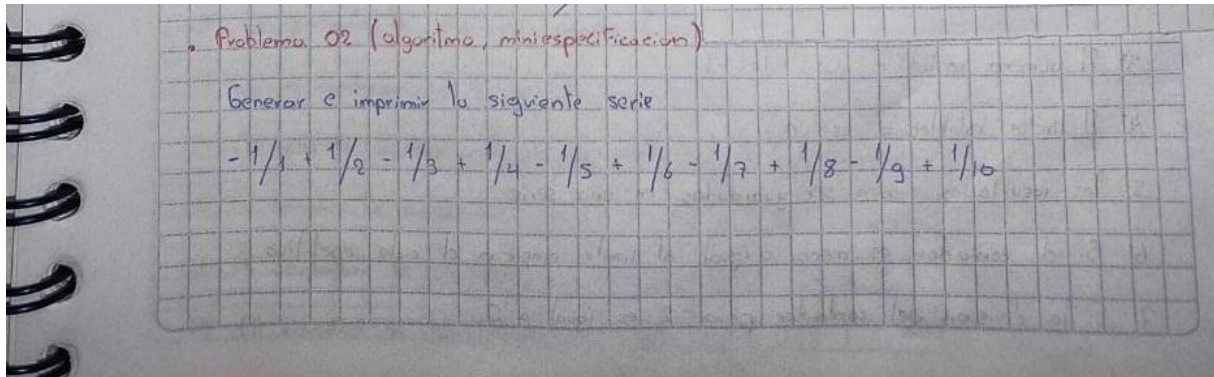 . Problema 02 (algoritmo, miniespecificacion)
Generar e imprimir la siguiente serie
- 1/1 + 1/2 - 1/3 + 1/4 - 1/5 + 1/6 - 1/7 + 1/8 - 1/9 + 1/10